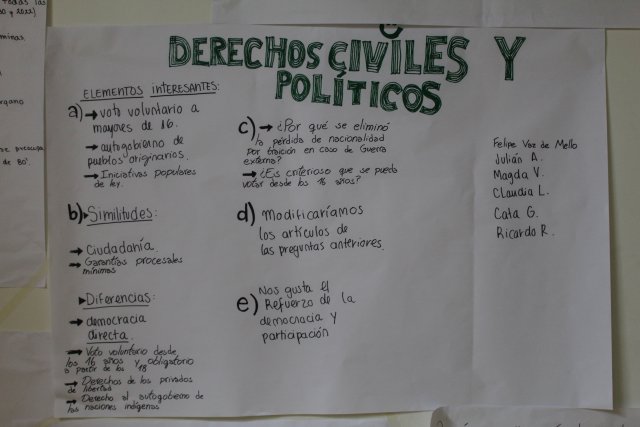 DERECHOS CIVILES Y
POLÍTICOS
ELEMENTOS INTERESANTES:
a) → voto voluntario a
mayores de 16.
→ autogobierno de
pueblos originarios.
→ Iniciativas populares
de ley.
b) ▸ Similitudes:
→ Ciudadanía
→ Garantías procesales
mínimas
▸ Diferencias:
→ democracia
directa.
→ Voto voluntario desde
los 16 años y obligatorio
a partir de los 18
→ Derechos de los privados
de libertad
→ Derecho al autogobierno de
las naciones indígenas
c) → ¿Por qué se eliminó
la pérdida de nacionalidad
por traición en caso de Guerra
externa?
→ ¿Es criterioso que se pueda
votar desde los 16 años?
d) Modificaríamos
los artículos de
las preguntas anteriores.
e) Nos gusta el
Refuerzo de la
democracia y
participación
Felipe Vaz de Mello
Julián A.
Magda V.
Claudia L.
Cata G.
Ricardo R.
todas las
y 2022)
minas.
órgano
preocupa
de 80'.